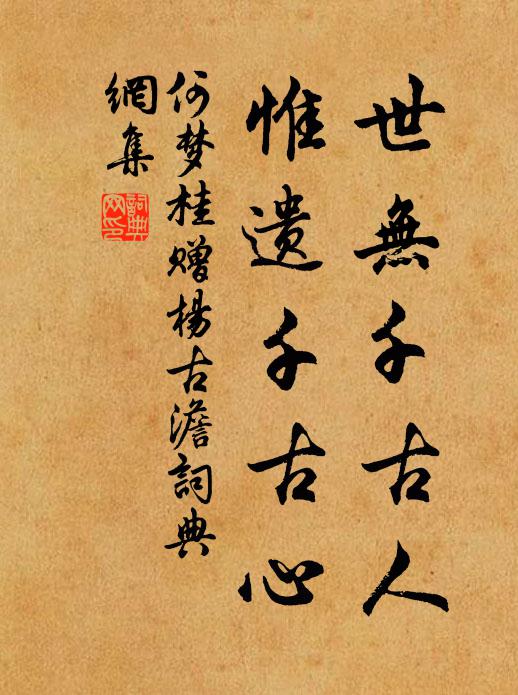 世無千古人
惟遗千古心
何梦桂赠楊古澹詞典
網集
詞典
网印